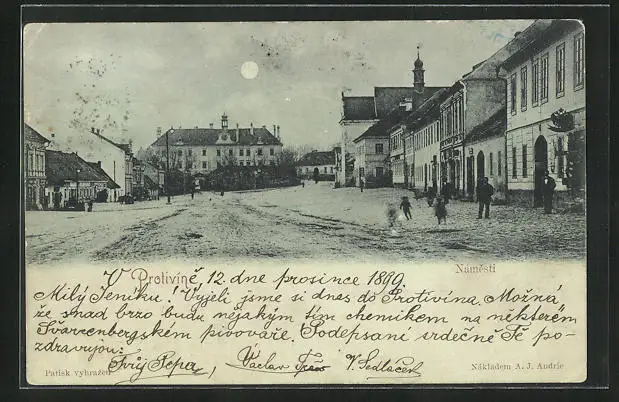 Náměstí
V Protivíně 12. dne prosince 1899.
Milý Jeníku! Vyjeli jsme si dnes do Protivína. Možná
že snad brzo budu nějakým tím chemikem na některém
Švarcenberském pivováře. Podepsaní srdečně Tě po-
zdravujou:
Tvůj Pepa, Václav V. Sedláček
Patisk vyhražen. Nákladem A. J. Andrle